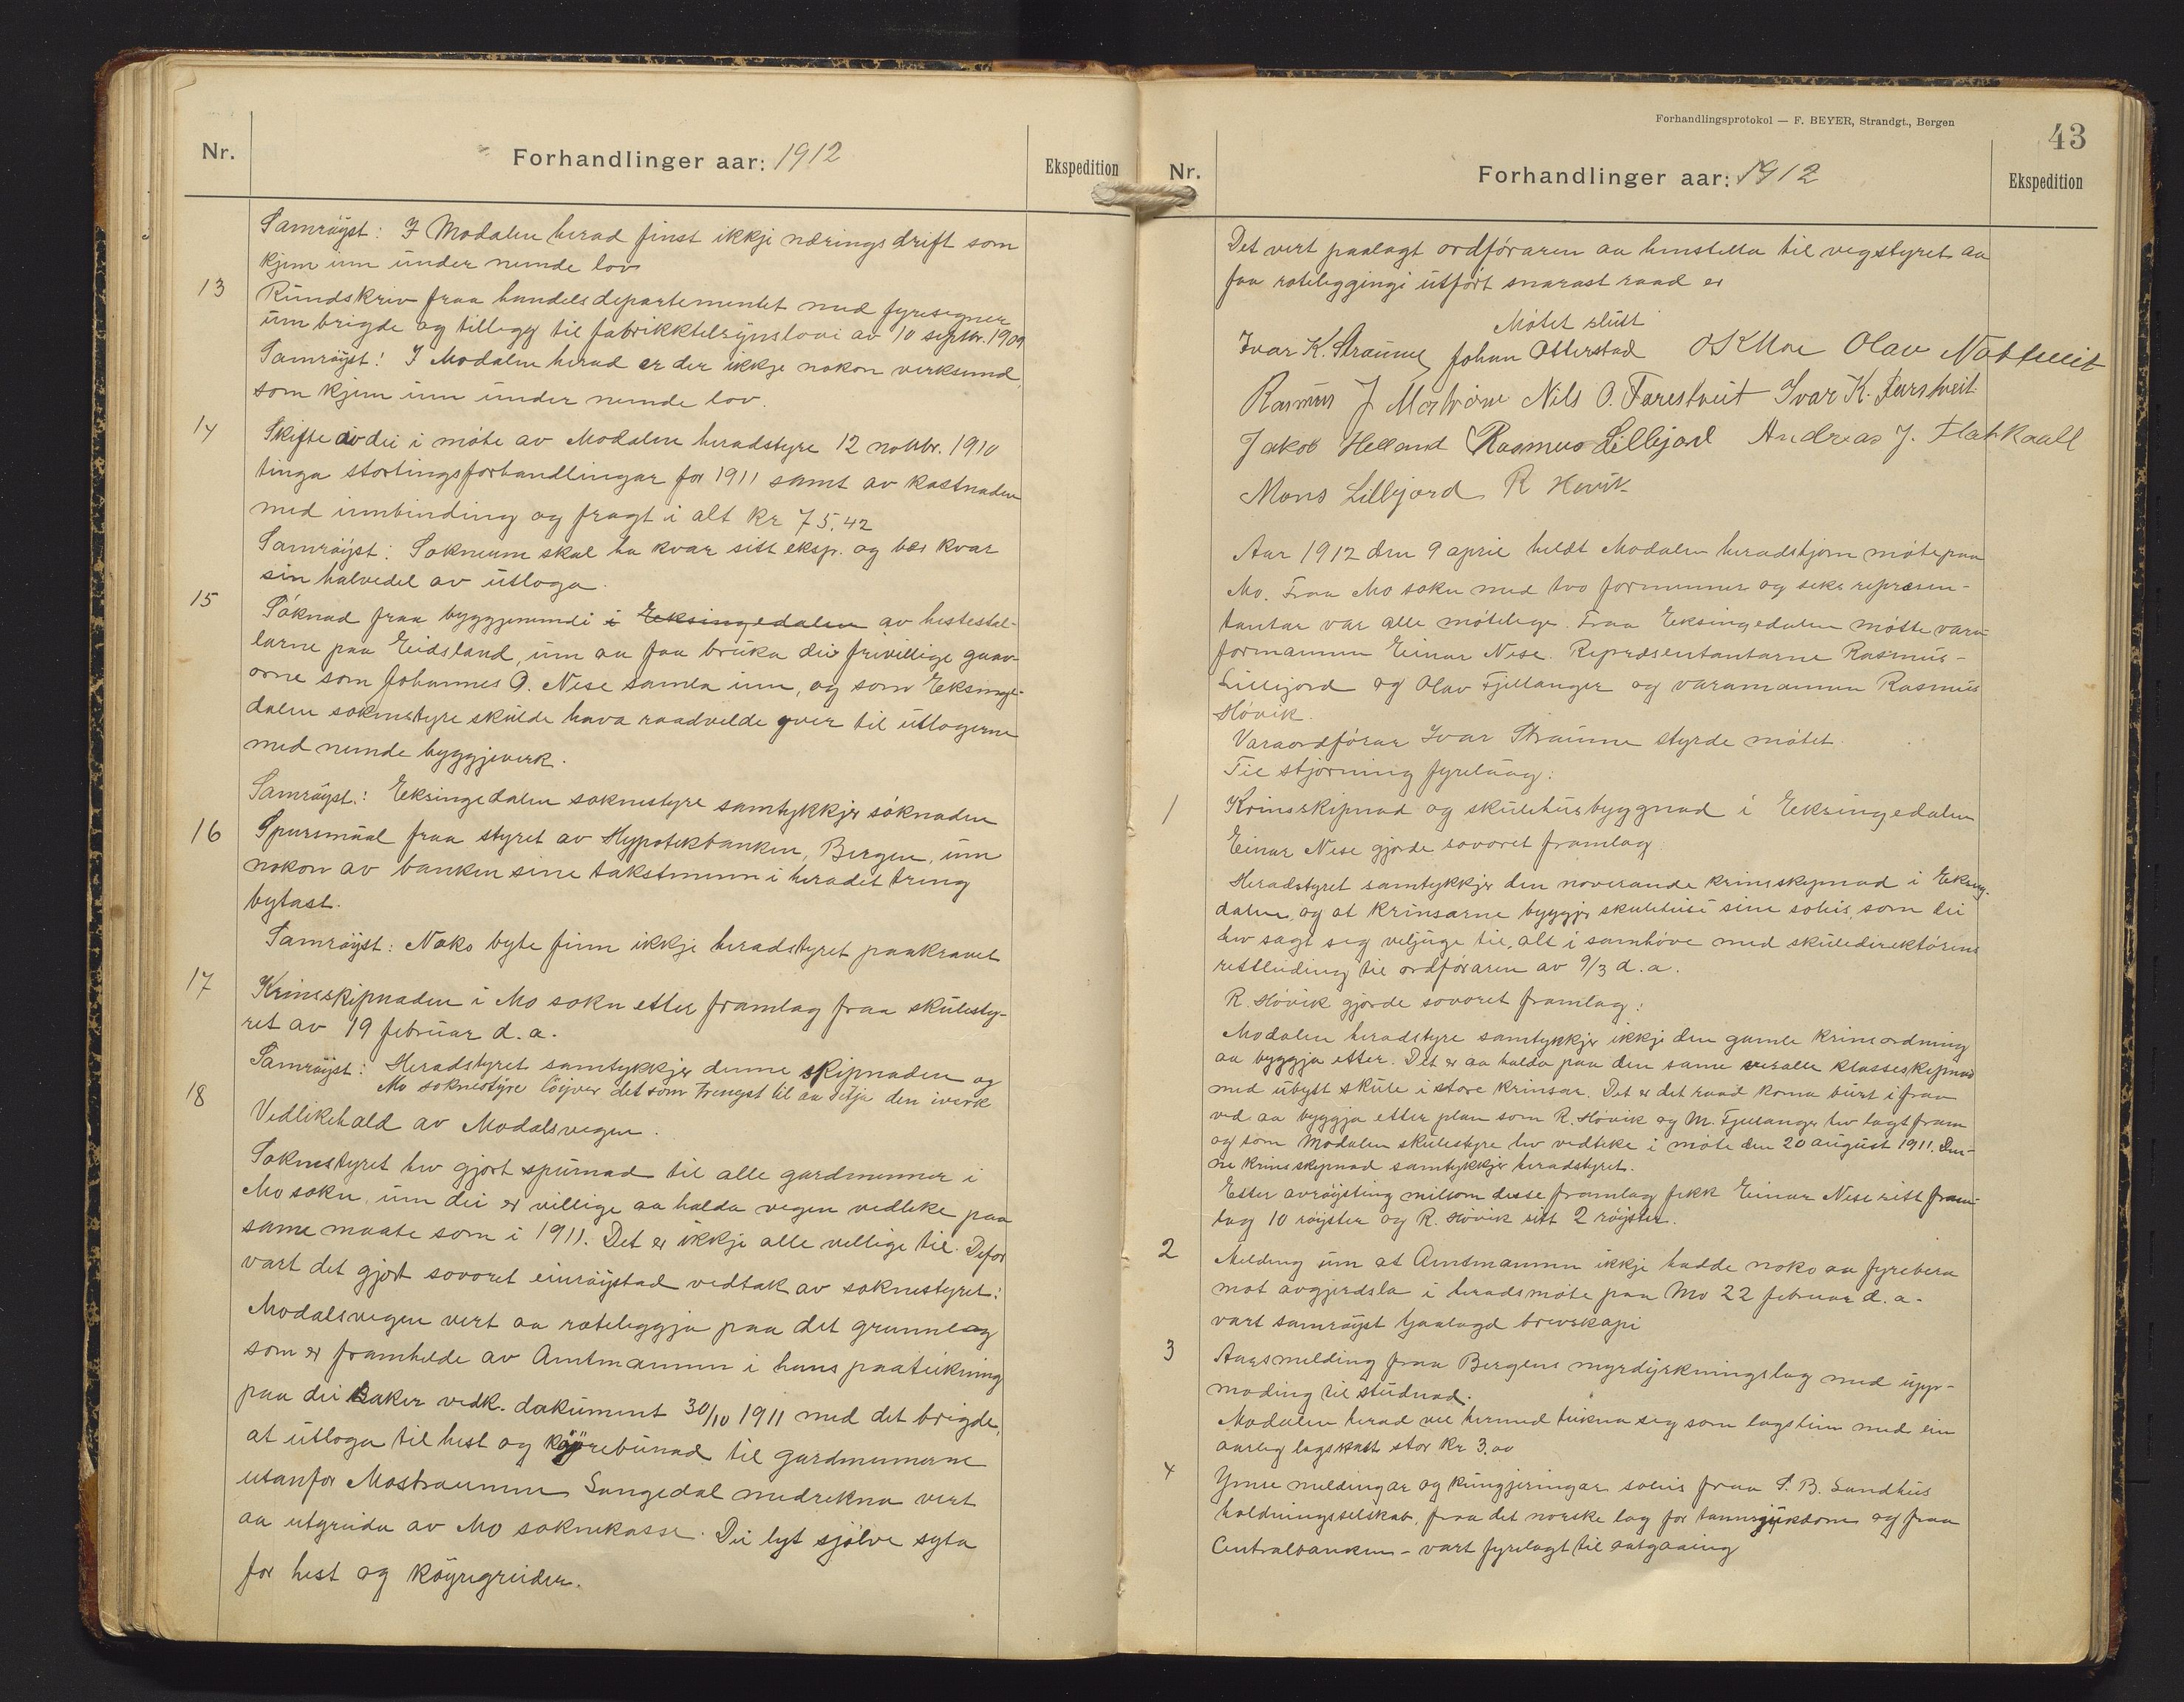 Nr.
Forhandlinger aar: 1912
Ekspedition
Samrøyst: I Modalen herad finst ikkje næringsdrift som
kjem inn under nemde lov
13 Rundskriv fraa handelsdepartementet med fyresegner
um brigde og tillegg til fabrikktilsynslovi av 10 septbr. 1909
Samrøyst: I Modalen herad er der ikkje nokon verksemd,
som kjem inn under nemde lov.
14 Skifte av dei i møte av Modalen heradstyre 12 novbr. 1910
tinga stortingsforhandlingar for 1911 samt av kostnaden
med innbinding og fragt i alt kr 75.42
Samrøyst: Soknerne skal ha kvar sitt eksp. og ber kvar
sin halvedel av utloga.
15 Søknad fraa byggjenemndi i Eeksingedalen av hestestal-
larne paa Eidsland, um aa faa bruka dei frivillige gaav-
orne som Johannes O. Nese samla inn, og som Eksinge-
dalen soknestyre skulde hava raadvelde yver til utlogerne
med nemde byggjeverk.
Samrøyst: Eeksingedalen soknestyre samtykkjer søknaden
16 Spursmaal fraa styret av Hypotekbanken, Bergen, um
nokon av banken sine takstmenn i heradet treng
bytast.
Samrøyst: Noko byte finn ikkje heradstyret paakravet
17 Krinsskipnaden i Mo sokn etter framlag fraa skulesty-
ret av 19 februar d.a.
Samrøyst: Heradstyret samtykkjer denne skipnaden og
Mo soknestyre løyver det som trengst til aa setja den iverk
18 Vedlikehald av Modalsvegen.
Soknestyret hev gjort spurnad til alle gardmenner i
Mo sokn, um dei er villige aa halda vegen vedlike paa
same maate som i 1911. Det er ikkje alle villige til. Defor
vart det gjort sovoret einrøystad vedtak av soknestyret:
Modalsvegen vert aa roteleggja paa det grunnlag
som er framhelde av Amtmannen i hans paateikning
paa dei saker vedk. dokument 30/10 1911 med det brigde,
at utloga til hest og køyrebunad til gardmennerne
utanfor Mostraumen Sangedal medrekna vert
aa utgreida av Mo soknekasse. Dei lyt sjølve syta
for hest og køyregreider.
Forhandlingsprotokol — F. BEYER, Strandgt., Bergen
43
Nr.
Forhandlinger aar: 1912
Ekspedition
Det vert paalagt ordføraren aa henstella til vegstyret aa
faa roteleggingi utført snarast raad er
Møtet slutt
Ivar K. Straume Johan Otterstad O K Moe Olav Nottveit
Rasmus J Mostrøm Nils O. Farestveit Ivar K. Farestveit
Jakob Helland Rasmus Lillejord Andreas J. Flatkvall
Mons Lillejord R Høvik
Aar 1912 den 9 april heldt Modalen heradstjorn møte paa
Mo. Fraa Mo sokn med tvo formenner og seks represen-
tantar var alle møtelege. Fraa Eeksingedalen møtte vara
formannen Einar Nese. Representantarne Rasmus
Lillejord og Olav Fjellanger og varamannen Rasmus
Høvik.
Varaordførar Ivar Straume styrde møtet.
Til stjorning fyrelaag:
1 Krinsskipnad og skulehusbyggnad i Eeksingedalen
Einar Nese gjorde sovoret framlag
Heradstyret samtykkjer den noverande krinsskipnad i Eksing-
dalen, og at krinsarne byggjer skulehus i sine soleis, som dei
hev sagt seg viljuge til, alt i samhøve med skuledirektørens
rettleiding til ordføraren av 9/3 d.a.
R. Høvik gjorde sovoret framlag:
Modalen heradstyre samtykkjer ikkje den gamle krinsordning
aa byggja etter. Det er aa halda paa den same klasseskipnad
med ubytt skule i store krinsar. Det er det raad koma burt ifraa
ved aa byggja etter plan som R. Høvik og M. Fjellanger hev lagt fram
og som Modalen skulestyre hev vedteke i møte den 20 august 1911. Den-
ne krinsskipnad samtykkjer heradstyret.
Etter avrøysting millom desse framlag fekk Einar Nese sitt fram-
lag 10 røyster og R. Høvik sitt 2 røyster.
2 Melding um at Amtmannen ikkje hadde noko aa fyrebera
mot avgjerdsla i heradsmøte paa Mo 22 februar d.a.
vart samrøyst brevskapi
3 Aarsmelding fraa Bergens myrdyrkningslag med upp-
moding til studnad.
Modalen herad vil hermed teikna seg som lagslim med ein
aarleg lagskatt stor kr 3.00
4 Ymse meldingar og kunngjeringar soleis fraa S. B. Landhus
holdningsselskab, fraa det norske lag for tannsjukdom og fraa
Centralbanken - vart fyrelagt til aatgaaing